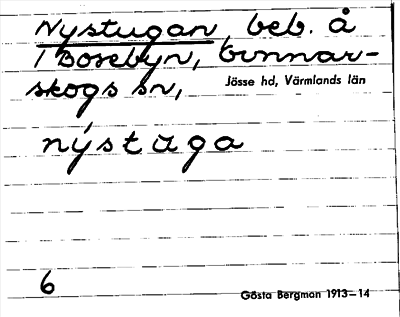 Nystugan, beb. å
1 Bosebyn, Gunnar-
skogs sn, Jösse hd, Värmlands län
nýstuga
6
Gösta Bergman 1913–14